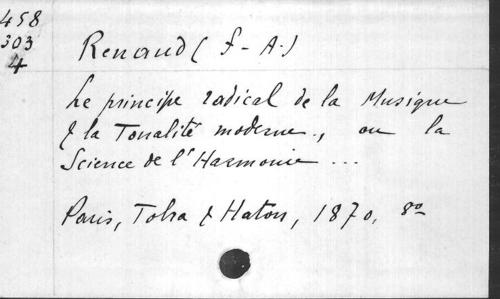 458
303
4
Renaud (F-A.)
Le principe radical de la Musique
& la Tonalité moderne., ou la
Science de l'Harmonie ...
Paris, Tolra & Haton, 1870, 8º